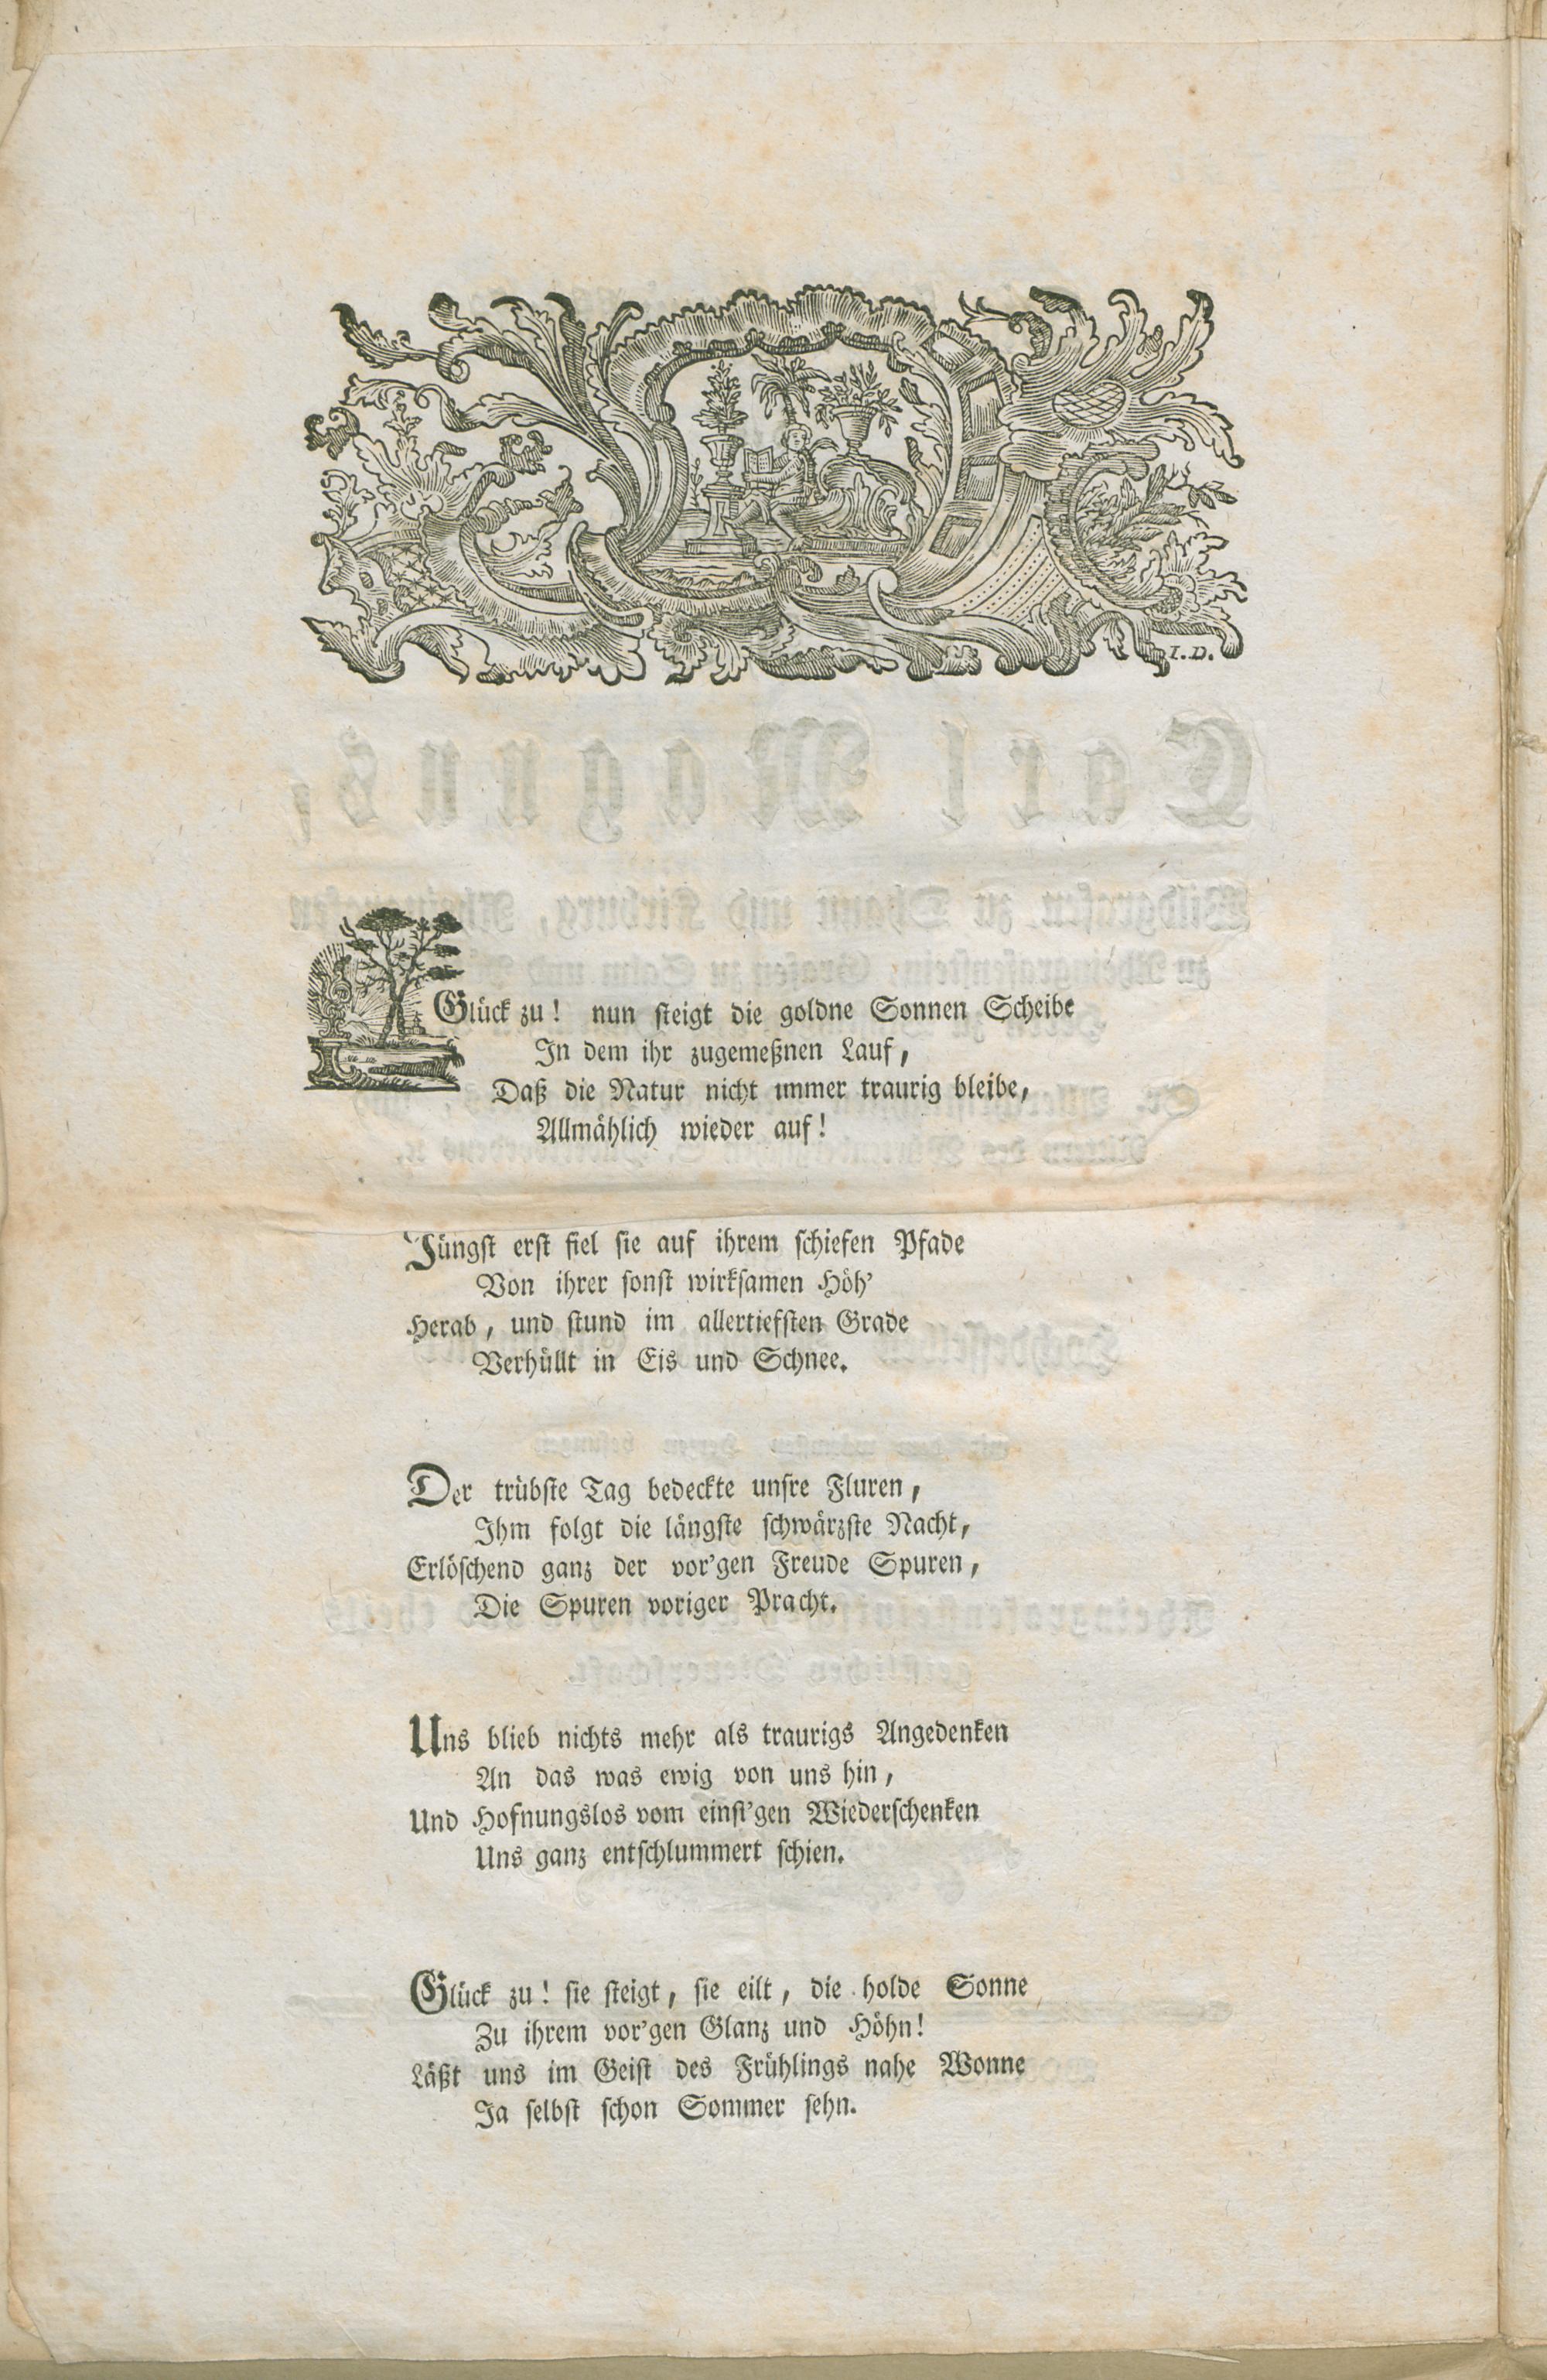 I. D.
Glück zu! nun steigt die goldne Sonnen Scheibe
In dem ihr zugemeßnen Lauf,
Daß die Natur nicht immer traurig bleibe,
Allmählich wieder auf!
Jüngst erst fiel sie auf ihrem schiefen Pfade
Von ihrer sonst wirksamen Höh'
Herab, und stund im allertiefsten Grade
Verhüllt in Eis und Schnee.
Der trübste Tag bedeckte unsre Fluren,
Ihm folgt die längste schwärzste Nacht,
Erlöschend ganz der vor'gen Freude Spuren,
Die Spuren voriger Pracht.
Uns blieb nichts mehr als traurigs Angedenken
An das was ewig von uns hin,
Und Hofnungslos vom einst'gen Wiederschenken
Uns ganz entschlummert schien.
Glück zu! sie steigt, sie eilt, die holde Sonne
Zu ihrem vor'gen Glanz und Höhn!
Läßt uns im Geist des Frühlings nahe Wonne
Ja selbst schon Sommer sehn.